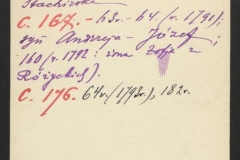 Stachiewicz
C. 167. – 63v. – 64. (r. 1791),
syn Andrzeja – Józef;
160 (r. 1792: żona Zofia z
Różyckich).
C. 176. 64v. (1792r.), 182.